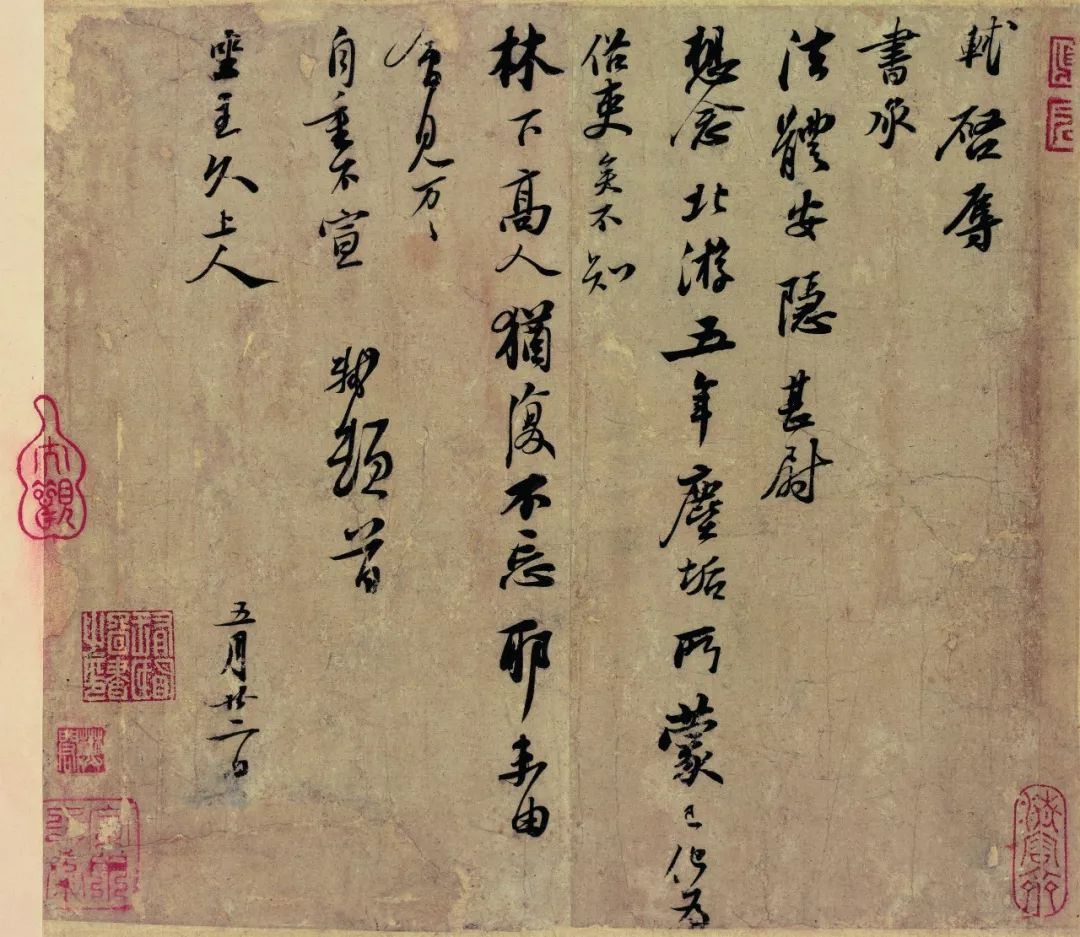 軾啓辱
書承
法體安隱甚尉
想念北游五年塵垢所蒙已化爲
俗吏矣不知
林下高人猶復不忘耶未由
會見万〻
自重不宣　軾頓首
坐主久上人
五月廿二日
大觀